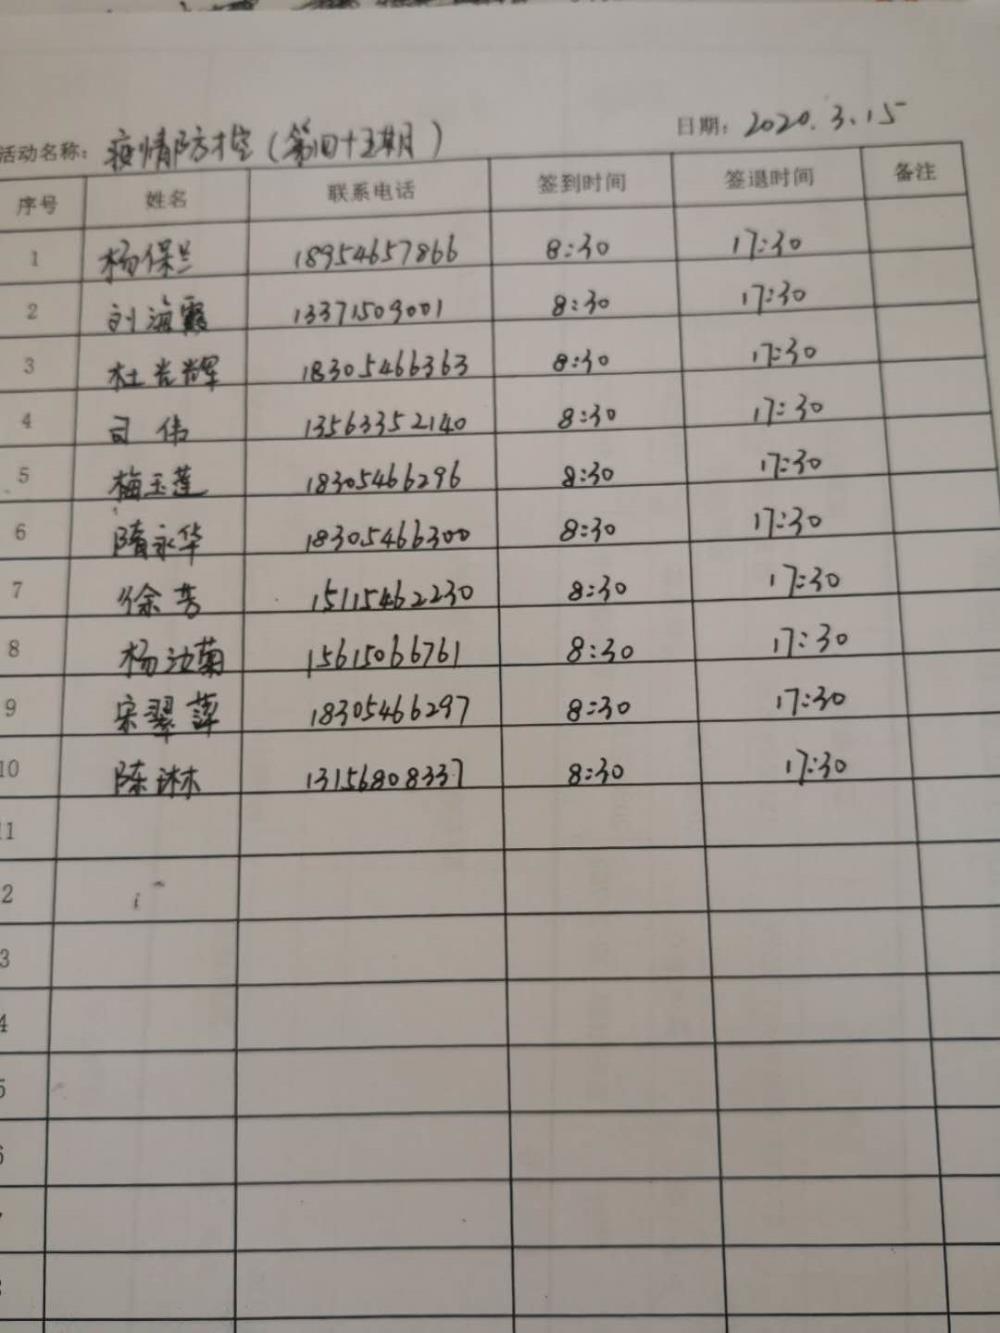 日期：2020.3.15
活动名称：疫情防控（第四十五期）
序号 姓名 联系电话 签到时间 签退时间 备注
1 杨保兰 18954657866 8:30 17:30
2 刘海霞 13371509001 8:30 17:30
3 杜光辉 18305466363 8:30 17:30
4 司伟 13563352140 8:30 17:30
5 梅玉莲 18305466296 8:30 17:30
6 隋永华 18305466300 8:30 17:30
7 徐芳 15115462230 8:30 17:30
8 杨汝菊 15615066761 8:30 17:30
9 宋翠萍 18305466297 8:30 17:30
10 陈琳 13156808337 8:30 17:30
11
2
3
4
5
6